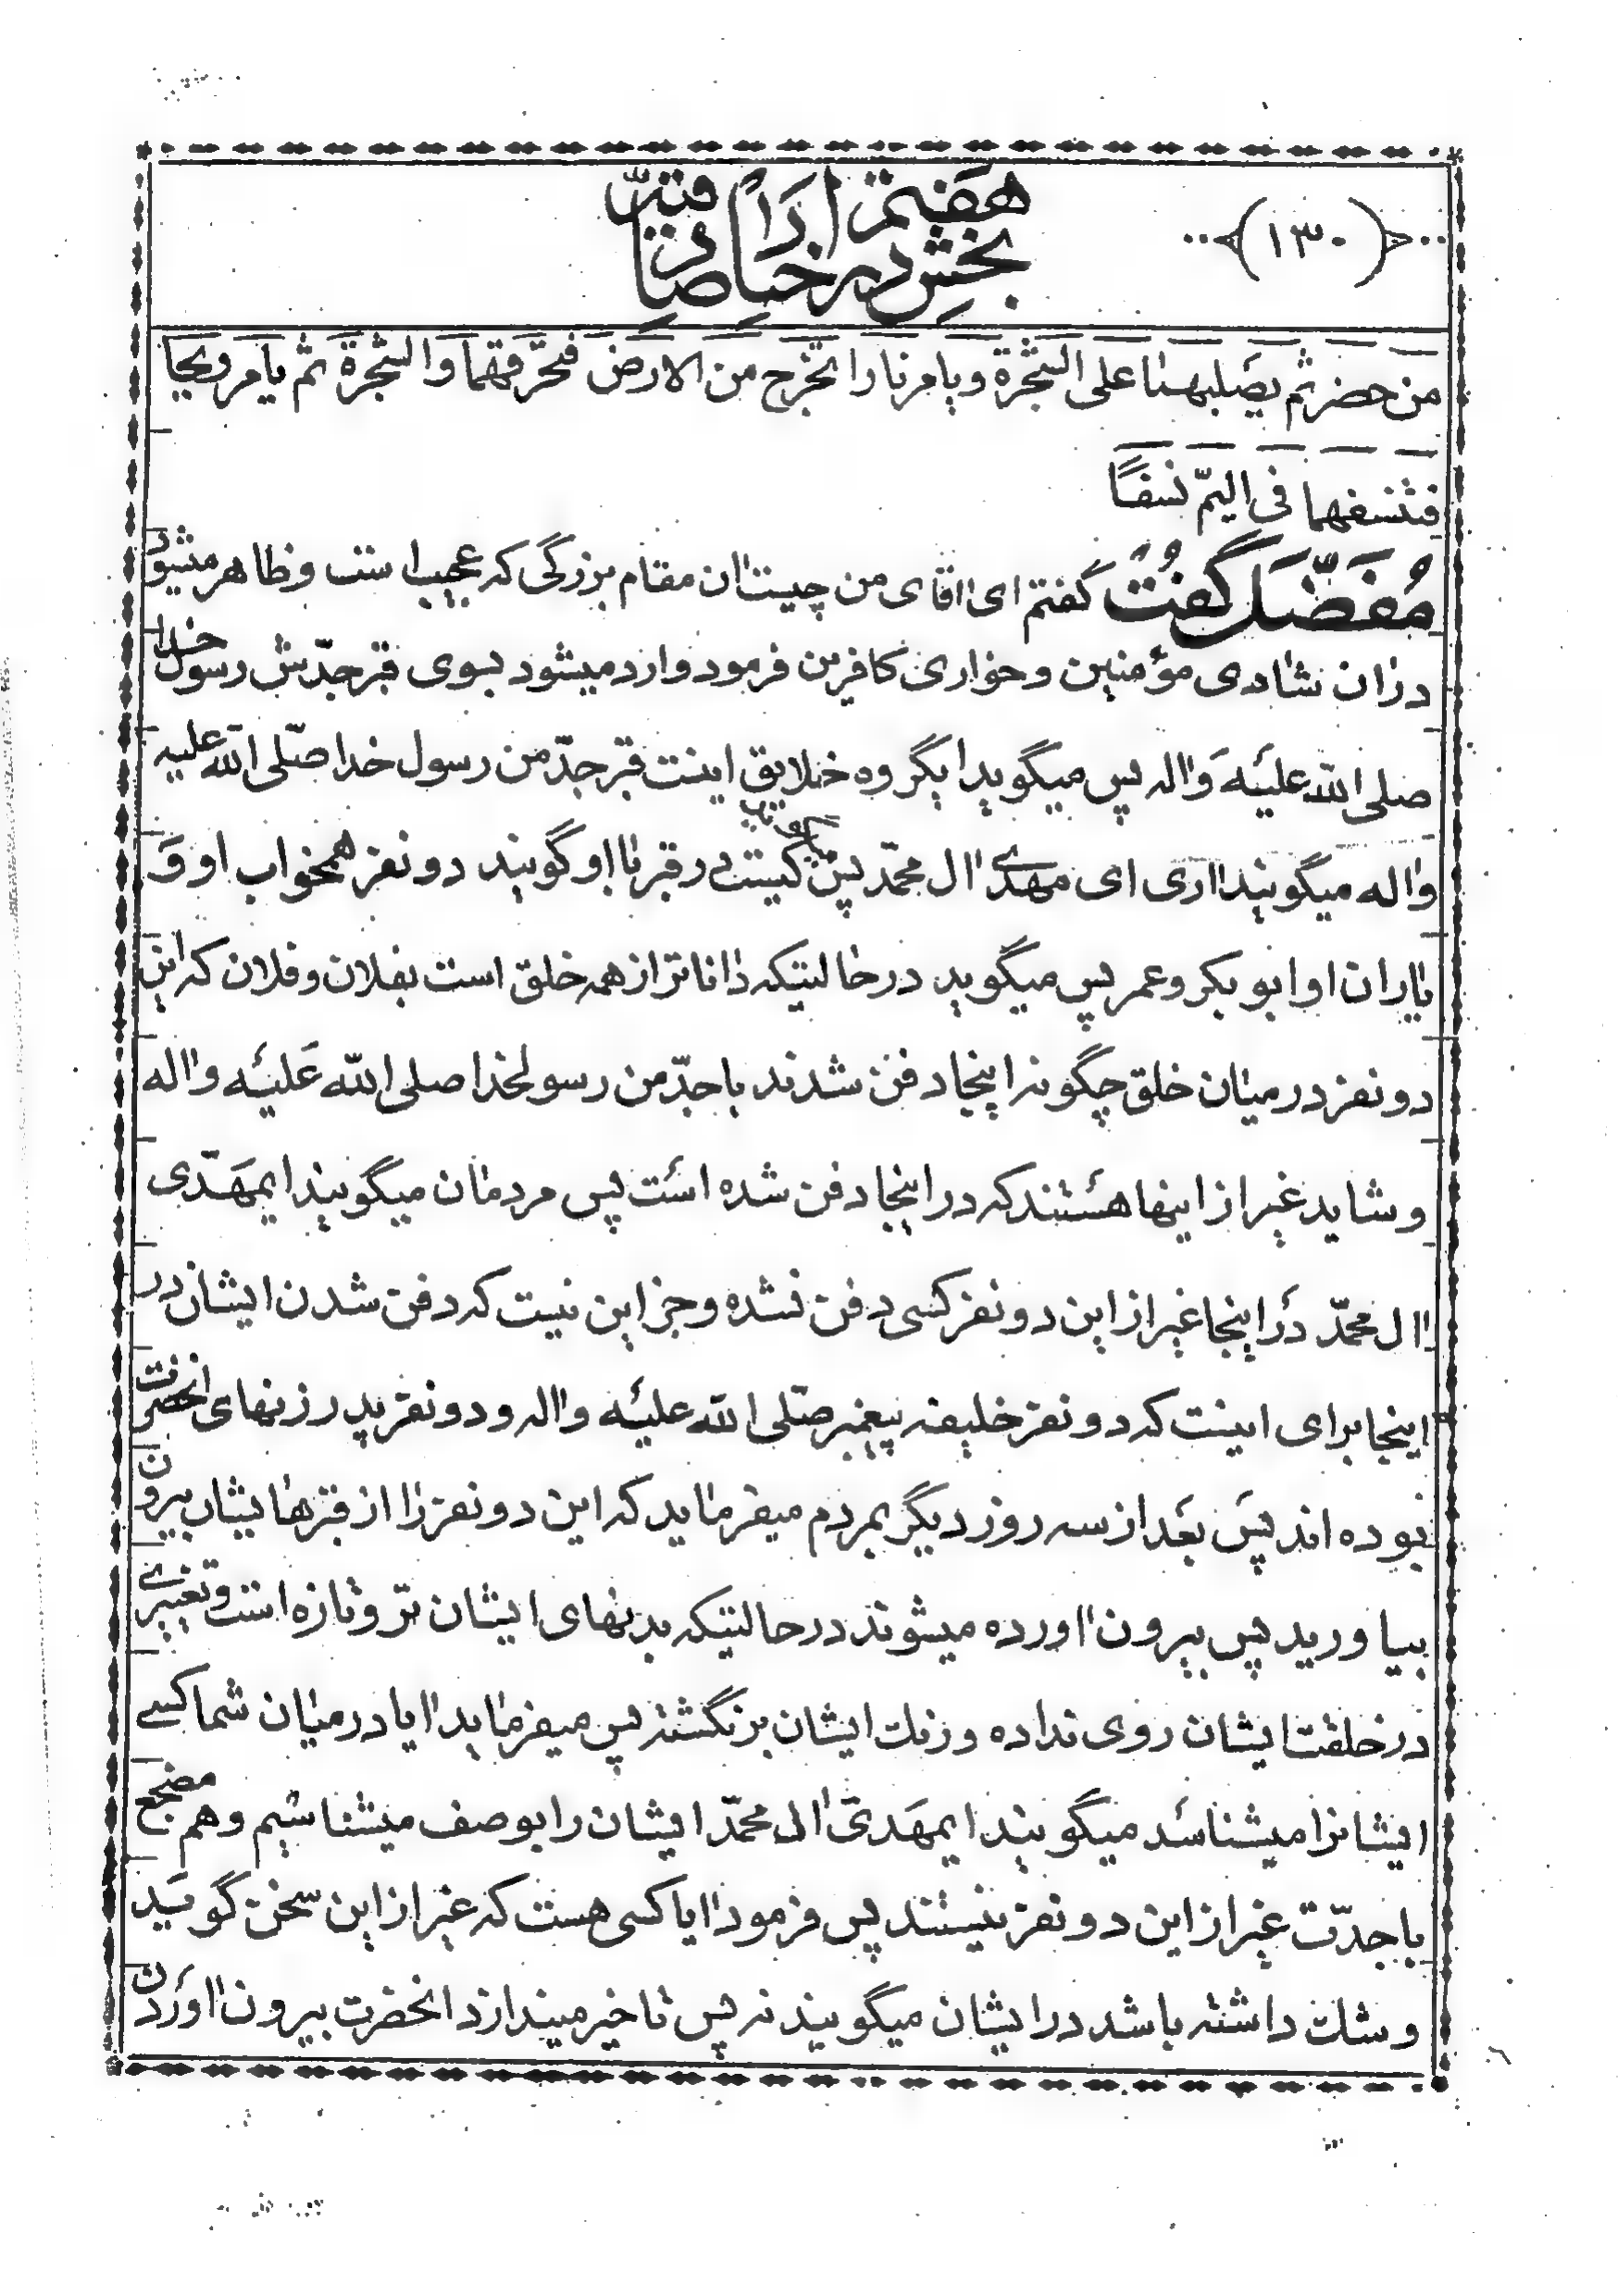 (١٣٠)
بخش هفتم در اخبار صادقین
من حضر ثم یصلبهما علی الشجرة و یامر نارا تخرج من الارض فتحرقهما والشجرة ثم یامر ریحا
فتنسفهما فی الیمّ نسفاً
مُفَضّل گفت گفتم ای اقای من چیست ان مقام بزرگی که عجیب است و ظاهر میشود
در ان شادی مؤمنین و خواری کافرین فرمود وارد میشود بسوی قبر جدّش رسول خدا
صلی اللّه علیه واله پس میگوید ایگروه خلایق اینست قبر جدّ من رسول خدا صلّی اللّه علیه
واله میگویند اری ای مهدی ال محمّد پس میگوید کیست در قبر با او گویند دو نفر همخواب او وَ
یاران او ابوبکر و عمر پس میگوید درحالیتیکه داناتر از همه خلق است بفلان و فلان که این
دو نفر در میان خلق چگونه اینجا دفن شدند با جدّ من رسولخدا صلی اللّه علیه واله
و شاید غیر از اینها هستند که در اینجا دفن شده است پس مردمان میگویند ایمهَدّی
ال محمّد در اینجا غیر از این دو نفر کسی دفن نشده و جز این نیست که دفن شدن ایشان در
اینجا برای اینست که دو نفر خلیفه پیغمبر صلّی اللّه علیه واله و دو نفر پدر زنهای انحضرت
بوده اند پس بعد از سه روز دیگر بمردم میفرماید که این دو نفر را از قبرهایشان بیرون
بیاورید پس بیرون اورده میشوند درحالتیکه بدنهای ایشان تر و تازه است و تغییری
در خلقت ایشان روی نداده و رنك ایشان برنگشته پس میفرماید ایا در میان شما کسی
ایشانرا میشناسد میگویند ایمهَدیّ ال محمّد ایشان را بوصف میشناسیم و هم مضجع
با جدّت غیر از این دو نفر نیستند پس فرمود ایا کسی هست که غیر از این سخن گوید
و شك داشته باشد در ایشان میگویند نه پس تاخیر میندازد انحضرت بیرون اوردن